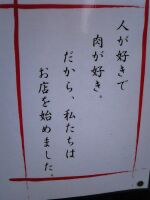 人が好きで
肉が好き。
だから、私たちは
お店を始めました。